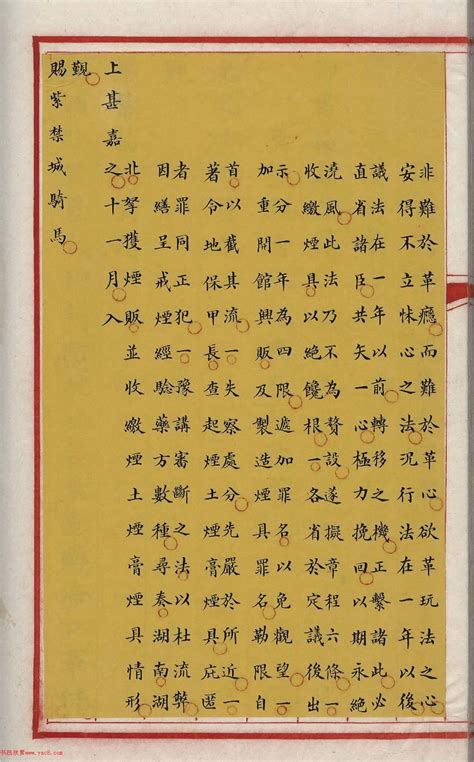 非難於革癮而難於革心欲革玩法之心
安得不立怵心之法況行法在一年以後
議法在一年以前轉移之機正繫諸此必
直省諸臣共矢一心極力挽回以期永絕
澆風此法乃不為贅設遂擬章程六條一
收繳煙具以絕饞根一各省於定議後出
示分一年為四限遞加罪名以免觀望一
加重開館興販及製造煙具罪名勒限自
首以截其流一失察處分先嚴於所近一
著令地保甲長查起煙土煙膏煙具庇匿
者罪同正犯一豫講審斷之法以杜流弊
因繕呈戒煙經驗藥方數種尋奏湖南湖
北拏獲煙販並收繳煙土煙膏煙具情形
上甚嘉之十一月入
覲
賜紫禁城騎馬
书法欣赏 www.yac8.com